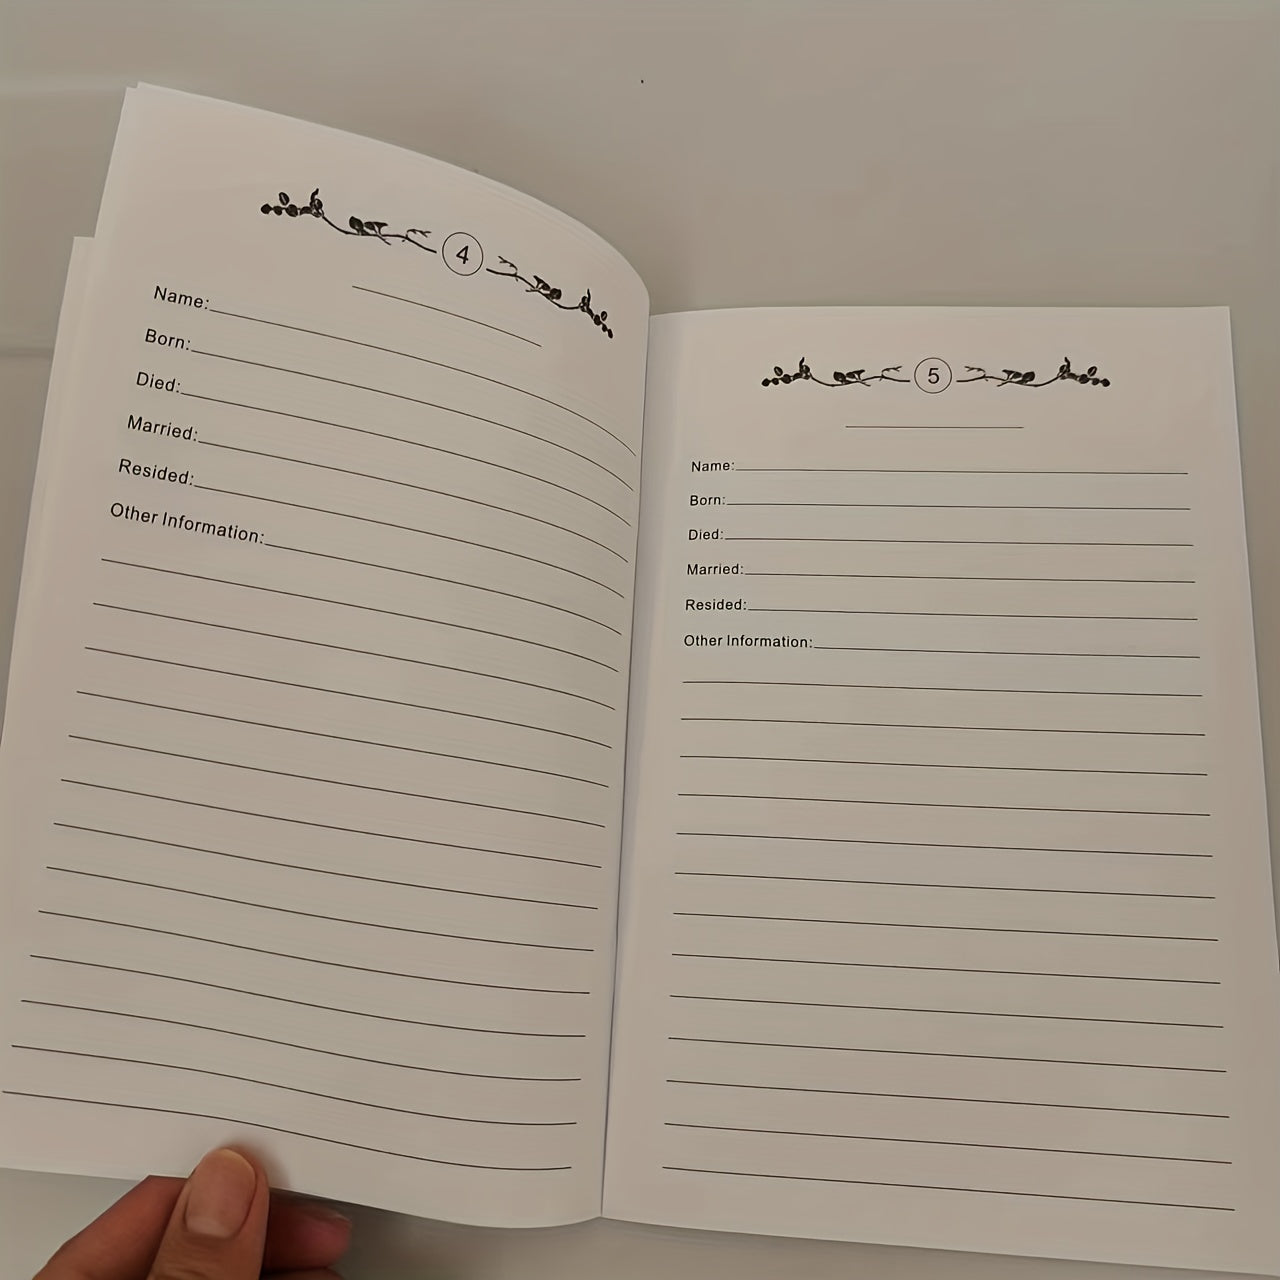 4
Name:
Born:
Died:
Married:
Resided:
Other Information:
5
Name:
Born:
Died:
Married:
Resided:
Other Information: